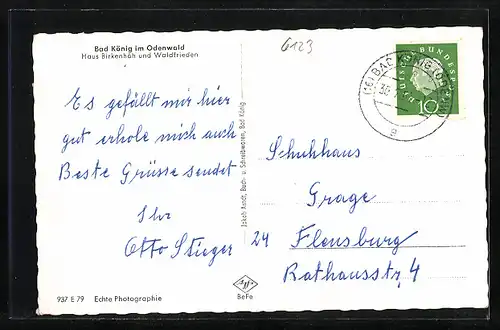 Bad König im Odenwald
Haus Birkenhäh und Waldfrieden
6123
Es gefällt mir hier
gut erhole mich auch
Beste Grüsse sendet
Ihr
Otto Steiger
Jakob Arndt, Buch- u. Schreibwaren, Bad König
DEUTSCHE BUNDESPOST
10
(16) BAD KÖNIG (ODENW)
a
Schuhhaus
Grage
24 Flensburg
Rathausstr. 4
Agfa
BeFe
937 E 79 Echte Photographie